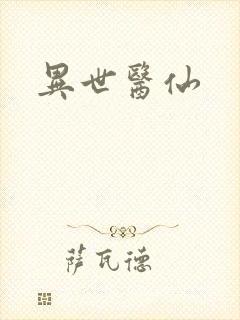 異世醫仙
萨瓦德